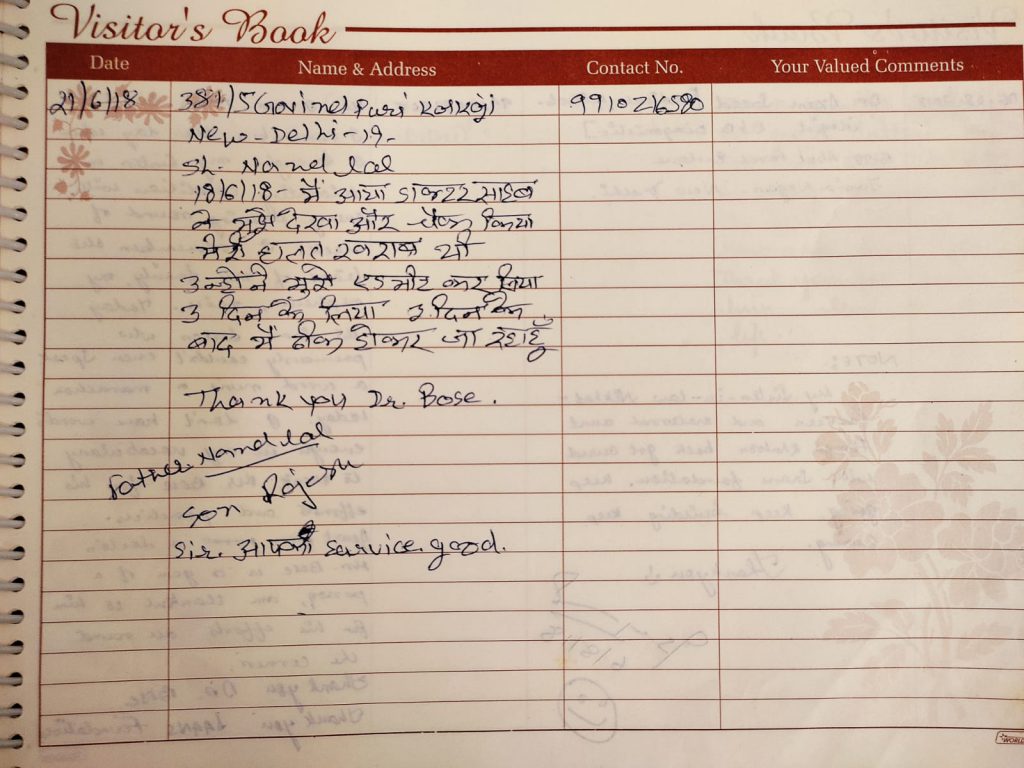 Visitor's Book
Date Name & Address Contact No. Your Valued Comments
21/6/18 381/5 Govind Puri Kalkaji 9910216580
New-Delhi-19-
Sh. Nand lal
18/6/18- मै आया डाकटर साहब
ने मुझे देखा और चैक किया
मेरी हालत खराब थी
उन्होंने मुझे एडमीट कर लिया
3 दिन के लिया 3 दिन के
बाद मैं ठीक होकर जा रहा हूँ
Thank you Dr. Bose.
Father Nand lal
Son Rajesh
Sir. आपकी Service good.